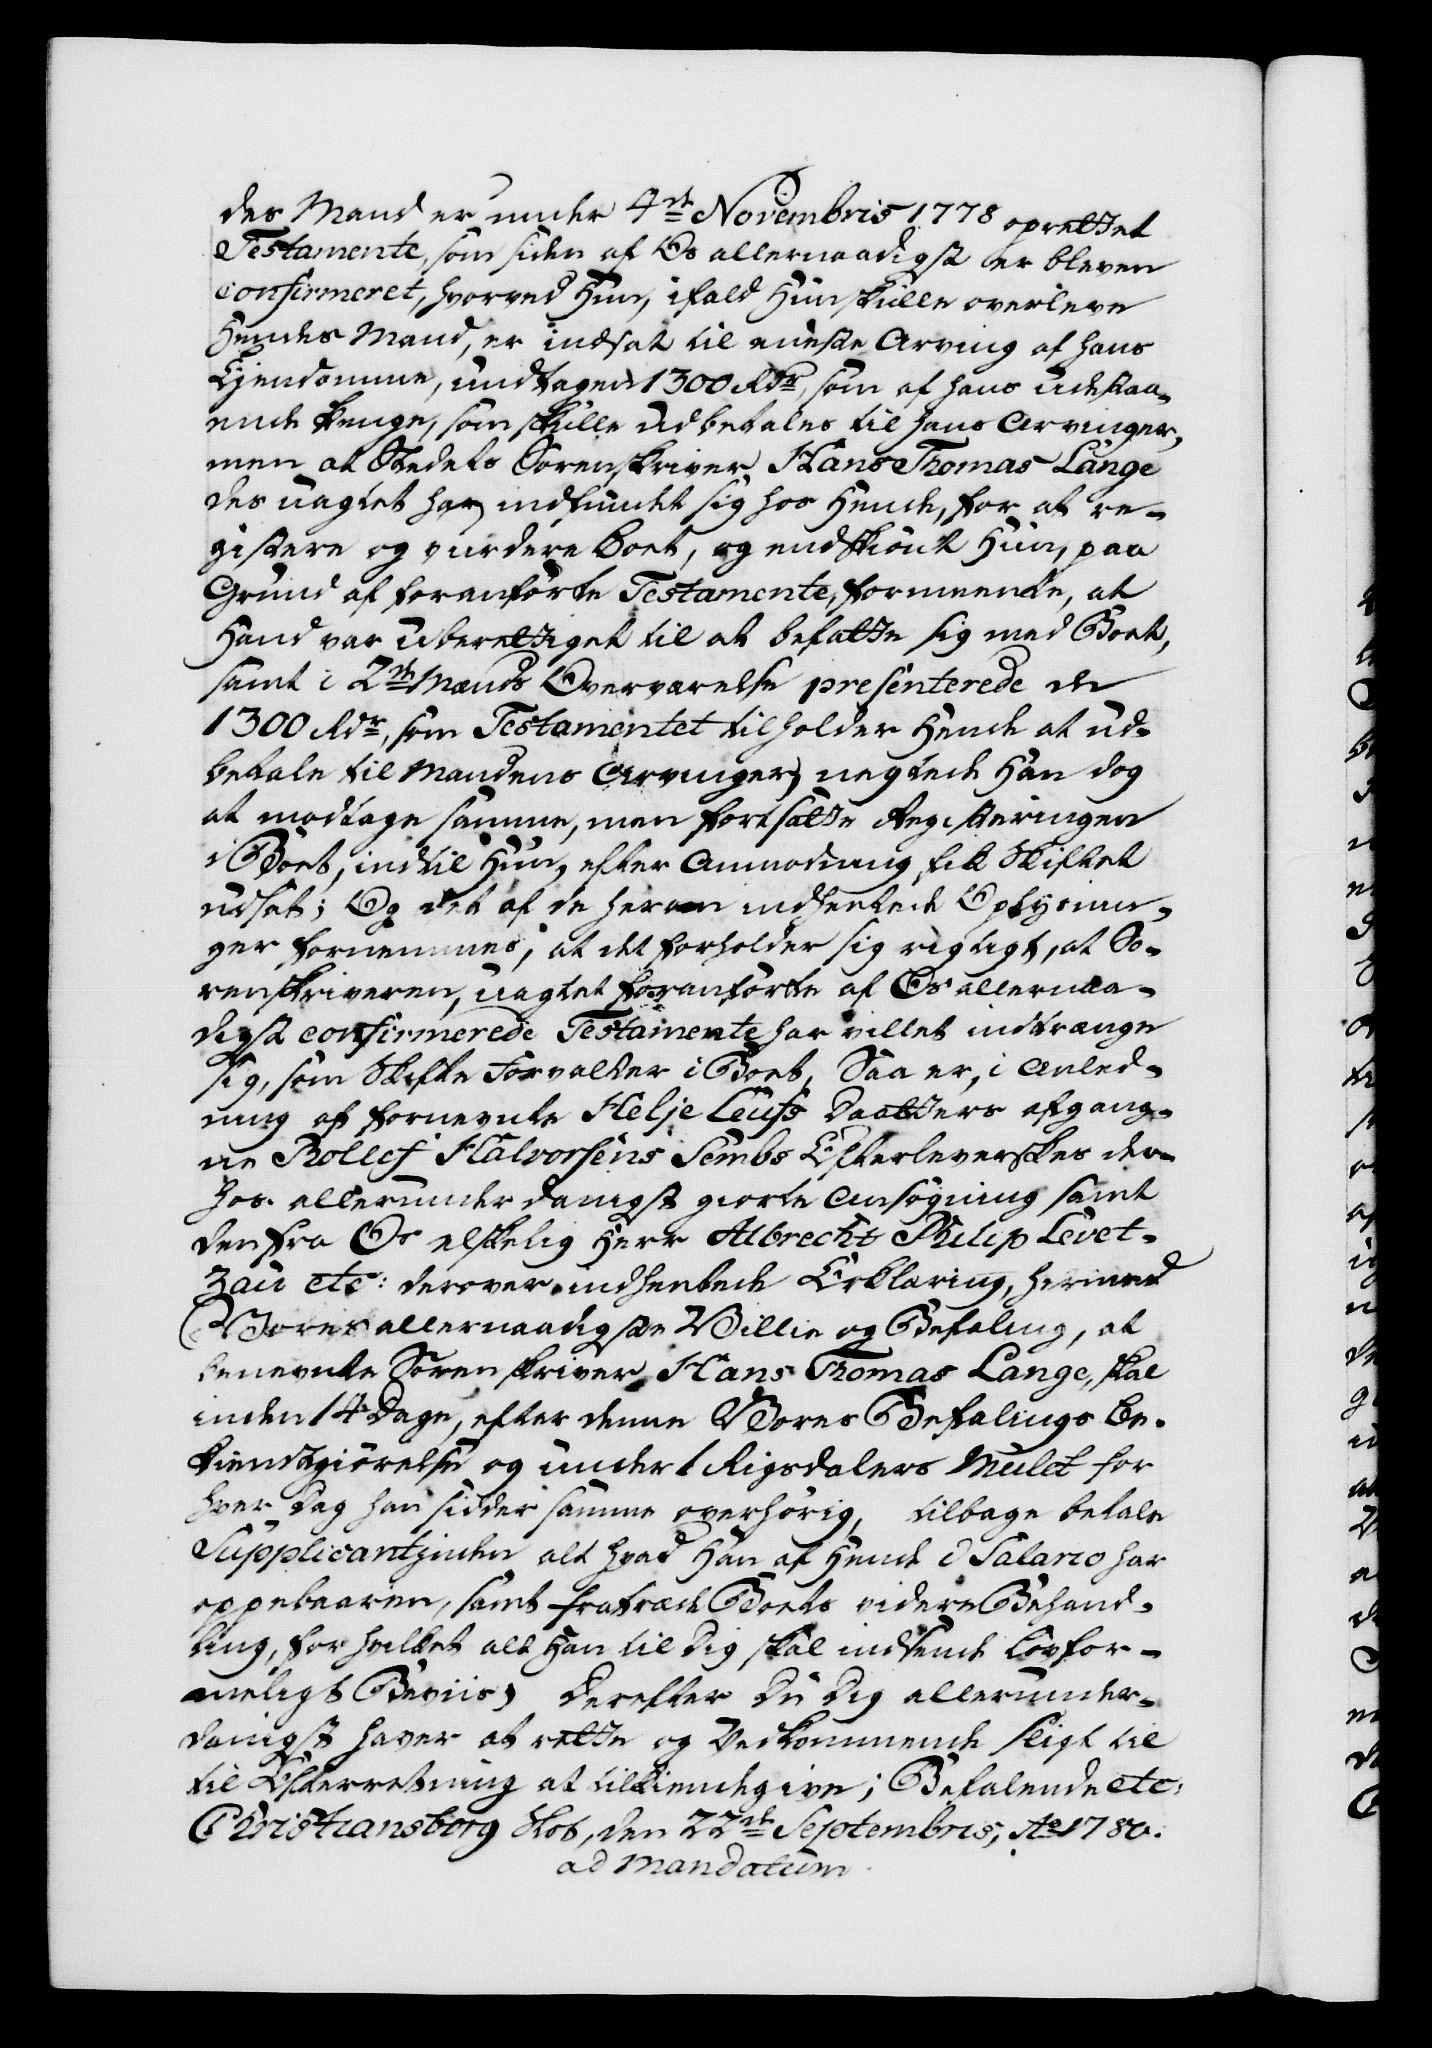 des Mand er under 4de Novembris 1778 oprettet
Testamente, som siden af Os allernaadigst er bleven
confirmeret, hvorved Hun, ifald Hun skulle overleve
Hendes Mand, er indsat til eneste Arving af hans
Ejendomme, undtagen 1300 Rdr, som af hans udestaa-
ende Penge, som skulle udbetales til hans Arvinger,
men at Stedets Sorenskriver Hans Thomas Lange
des uagtet har indfundet sig hos Hende, for at re-
gistere og vurdere Boet, og endskiönt Hun, paa
Grund af foranförte Testamente, formeente, at
Hand var uberettiget til at befatte sig med Boet,
samt i 2de Mænds Overværelse presenterede de
1300 Rdr, som Testamentet tilholder Hende at ud-
betale til Mandens Arvinger, negtede Han dog
at modtage samme, men fortsatte Registeringen
i Boet, indtil Hun, efter Anmodning, fik Skiftet
udsat; Og det af de herom indhentede Oplysnin-
ger fornemmes, at det forholder sig rigtigt, at So-
renskriveren, uagtet foranförte af Os allernaa-
digst confirmerede Testamente har villet indtrænge
sig, som Skifte Forvalter i Boet, Saa er, i Anled-
ning af fornevnte Helje Leufs Daatters afgang-
ne Rollef Halvorsens Sembs Efterleverskes der-
hos allerunderdanigst giorte Ansögning samt
den fra Os elskelig Herr Albrecht Philip Levet-
zau etc: derover indhentede Erklæring, hermed
Vores allernaadigste Villie og Befaling, at
benevnte Sorenskriver Hans Thomas Lange, skal
inden 14 Dage, efter denne Vores Befalings Be-
kiendtgiörelse og under 1 Rigsdalers Mulct for
hver Dag han sidder samme overhörig, tilbage betale
Supplicantinden alt hvad Han af Hende i Salario har
oppebaaren, samt fratræde Boets videre Behand-
ling, for hvilket alt Han til Dig skal indsende lovfor-
meligt Beviis; Derefter Du Dig allerunder-
danigst haver at rette og Vedkommende sligt til
til Efterretning at tilkiendegive; Befalende etc:
Christiansborg Slot, den 22de Septembris, Ao 1780.
ad Mandatum